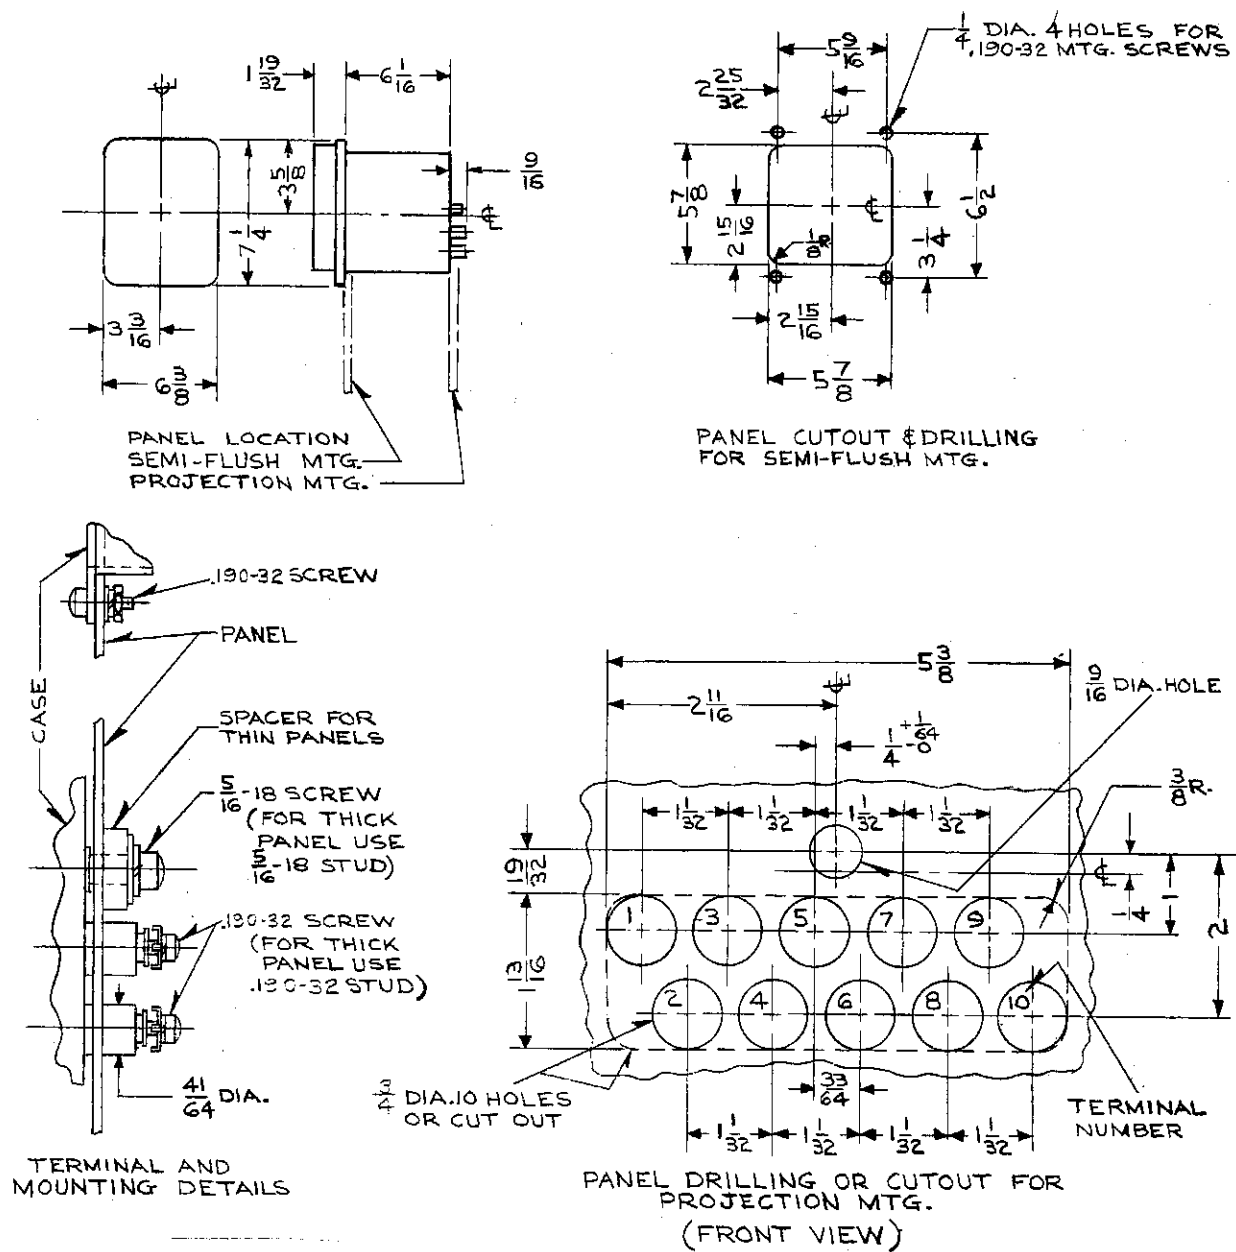 1 19/32
6 1/16
9/16
3 5/8
7 1/4
3 3/16
6 3/8
℄
℄
PANEL LOCATION
SEMI-FLUSH MTG.
PROJECTION MTG.
1/4 DIA. 4 HOLES FOR
.190-32 MTG. SCREWS
5 9/16
2 25/32
℄
5 7/8
2 15/16
1/8 R
℄
3 1/4
6 1/2
2 15/16
5 7/8
PANEL CUTOUT & DRILLING
FOR SEMI-FLUSH MTG.
.190-32 SCREW
PANEL
CASE
SPACER FOR
THIN PANELS
5/16-18 SCREW
(FOR THICK
PANEL USE
5/16-18 STUD)
.190-32 SCREW
(FOR THICK
PANEL USE
.190-32 STUD)
41/64 DIA.
TERMINAL AND
MOUNTING DETAILS
5 3/8
℄
2 11/16
1/4 +1/64 -0
9/16 DIA. HOLE
3/8 R.
1 1/32
1 1/32
1 1/32
1 1/32
19/32
℄
1/4
1
2
1 13/16
1
3
5
7
9
2
4
6
8
10
3/4 DIA. 10 HOLES
OR CUT OUT
33/64
1 1/32
1 1/32
1 1/32
1 1/32
TERMINAL
NUMBER
PANEL DRILLING OR CUTOUT FOR
PROJECTION MTG.
(FRONT VIEW)